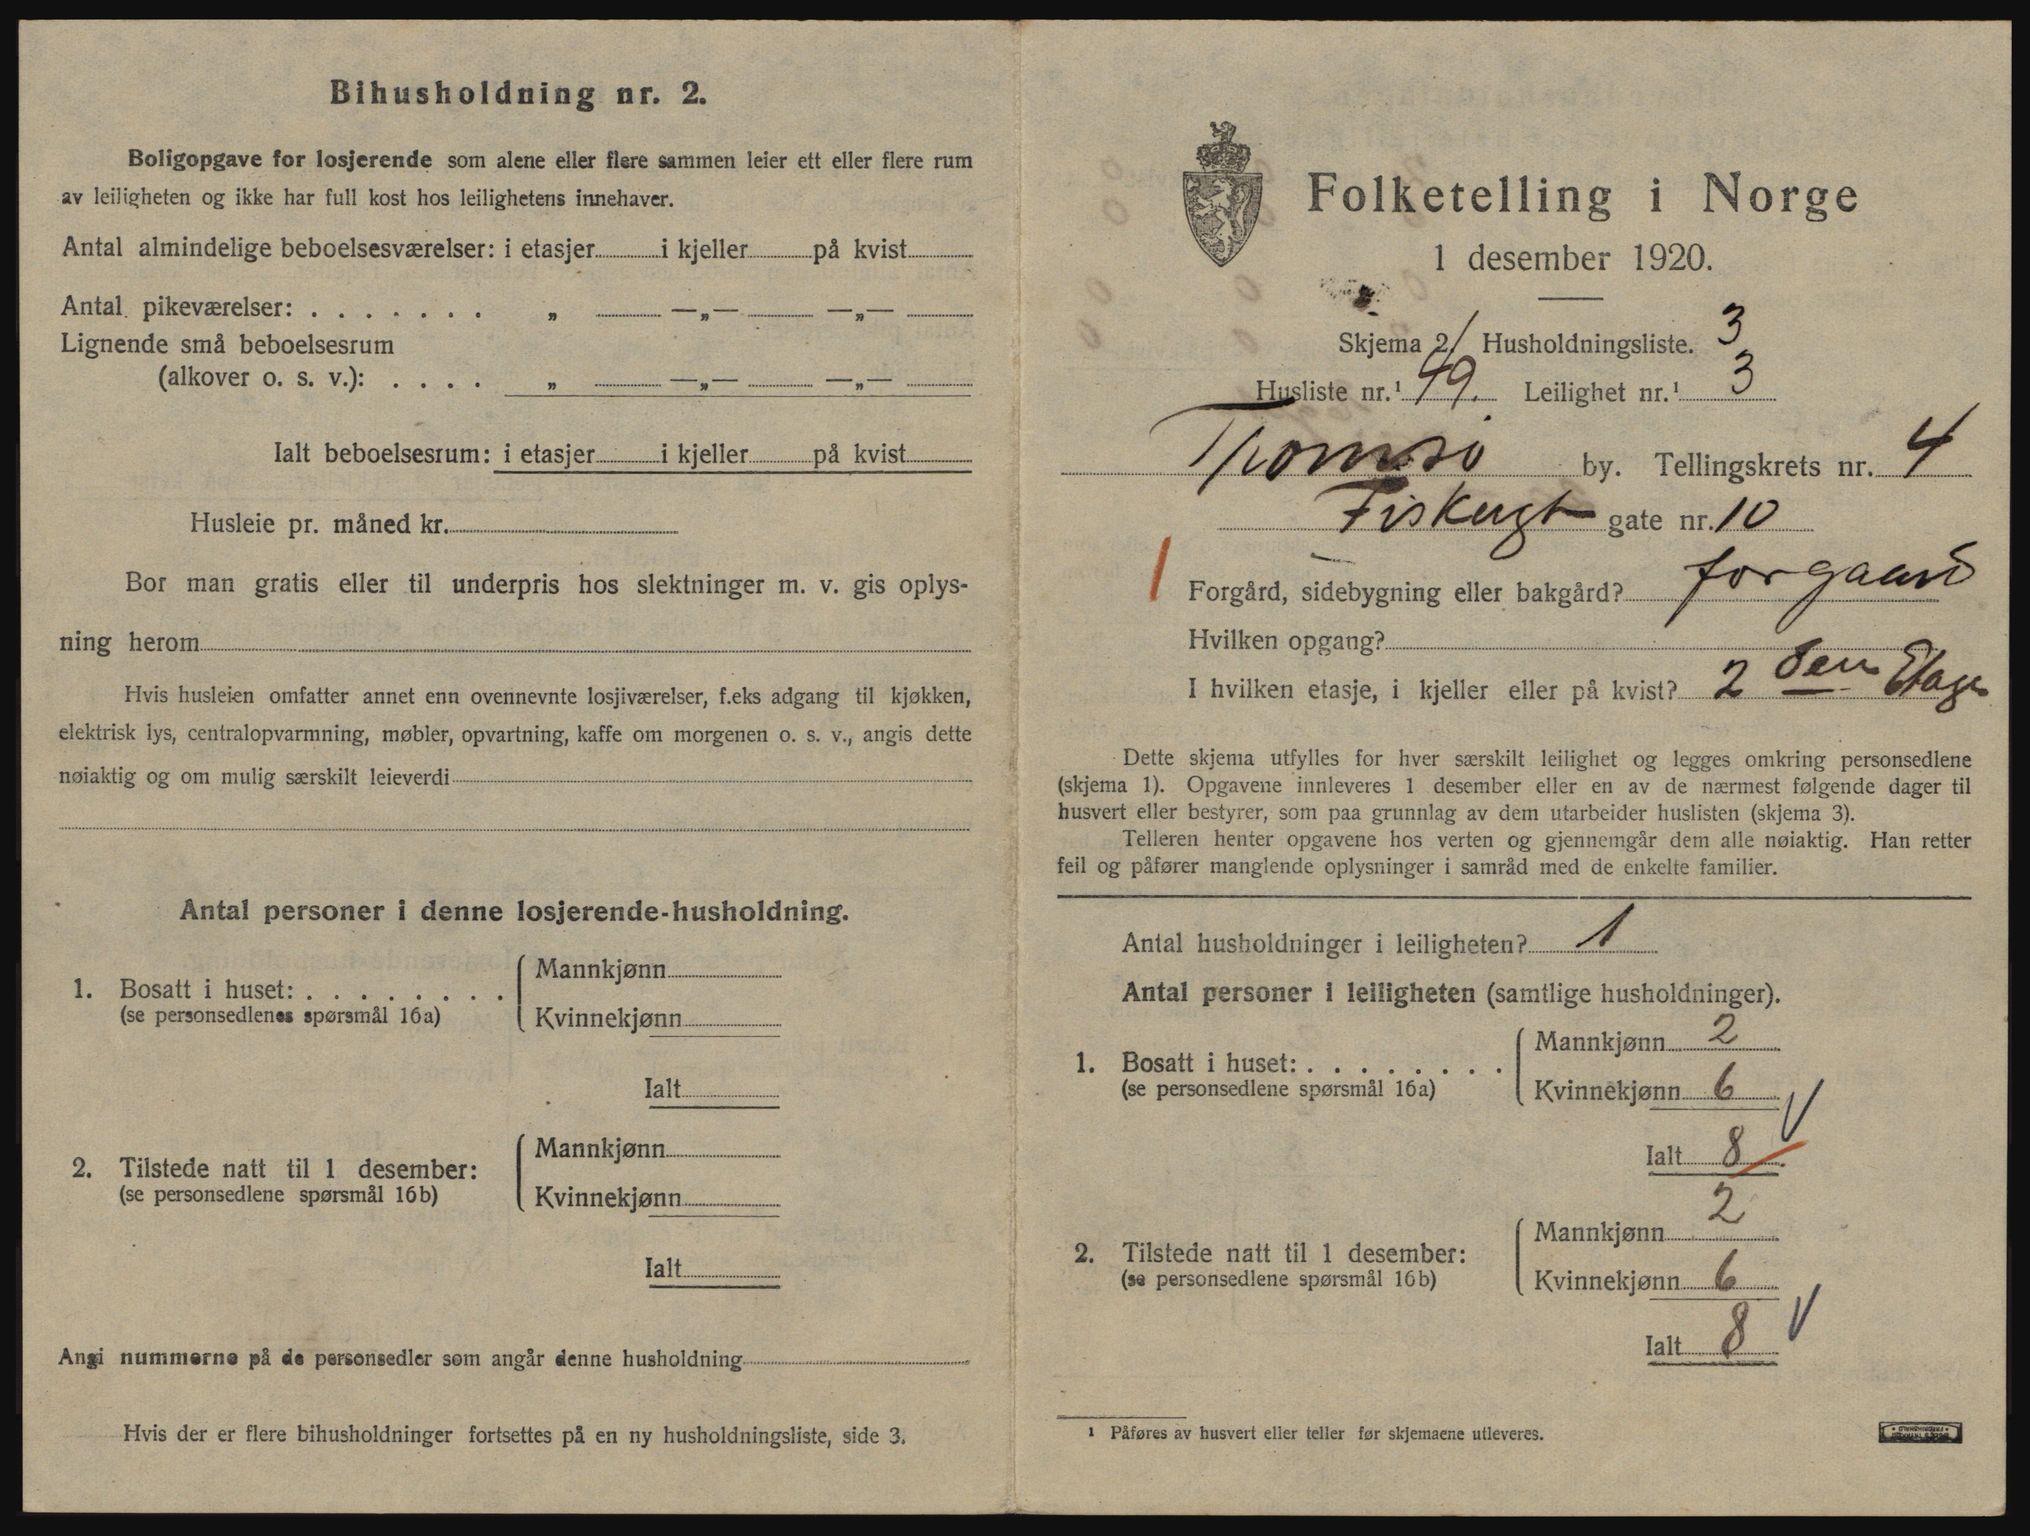 Bihusholdning nr. 2.
Boligopgave for losjerende som alene eller flere sammen leier ett eller flere rum
av leiligheten og ikke har full kost hos leilighetens innehaver.
Antal almindelige beboelsesværelser: i etasjer i kjeller på kvist
Antal pikeværelser: . . . . . . . „ —„— —„—
Lignende små beboelsesrum
(alkover o. s. v.): . . . . „ —„— —„—
Ialt beboelsesrum: i etasjer i kjeller på kvist
Husleie pr. måned kr.
Bor man gratis eller til underpris hos slektninger m. v. gis oplys-
ning herom
Hvis husleien omfatter annet enn ovennevnte losjiværelser, f.eks adgang til kjøkken,
elektrisk lys, centralopvarmning, møbler, opvartning, kaffe om morgenen o. s. v., angis dette
nøiaktig og om mulig særskilt leieverdi
Antal personer i denne losjerende-husholdning.
1. Bosatt i huset: . . . . . . . . .
(se personsedlenes spørsmål 16a)
Mannkjønn
Kvinnekjønn
Ialt
2. Tilstede natt til 1 desember:
(se personsedlene spørsmål 16b)
Mannkjønn
Kvinnekjønn
Ialt
Angi nummerne på de personsedler som angår denne husholdning
Hvis der er flere bihusholdninger fortsettes på en ny husholdningsliste, side 3.
Folketelling i Norge
1 desember 1920.
Skjema 2/ Husholdningsliste. 3
Husliste nr.¹ 49. Leilighet nr.¹ 3
Tromsø by. Tellingskrets nr. 4
Fiskergt gate nr. 10
1 Forgård, sidebygning eller bakgård? forgaard
Hvilken opgang?
I hvilken etasje, i kjeller eller på kvist? 2 den Etage
Dette skjema utfylles for hver særskilt leilighet og legges omkring personsedlene
(skjema 1). Opgavene innleveres 1 desember eller en av de nærmest følgende dager til
husvert eller bestyrer, som paa grunnlag av dem utarbeider huslisten (skjema 3).
Telleren henter opgavene hos verten og gjennemgår dem alle nøiaktig. Han retter
feil og påfører manglende oplysninger i samråd med de enkelte familier.
Antal husholdninger i leiligheten? 1
Antal personer i leiligheten (samtlige husholdninger).
1. Bosatt i huset: . . . . . . . .
(se personsedlene spørsmål 16a)
Mannkjønn 2
Kvinnekjønn 6
Ialt 8
2. Tilstede natt til 1 desember:
(se personsedlene spørsmål 16b)
Mannkjønn 2
Kvinnekjønn 6
Ialt 8
¹ Påføres av husvert eller teller før skjemaene utleveres.